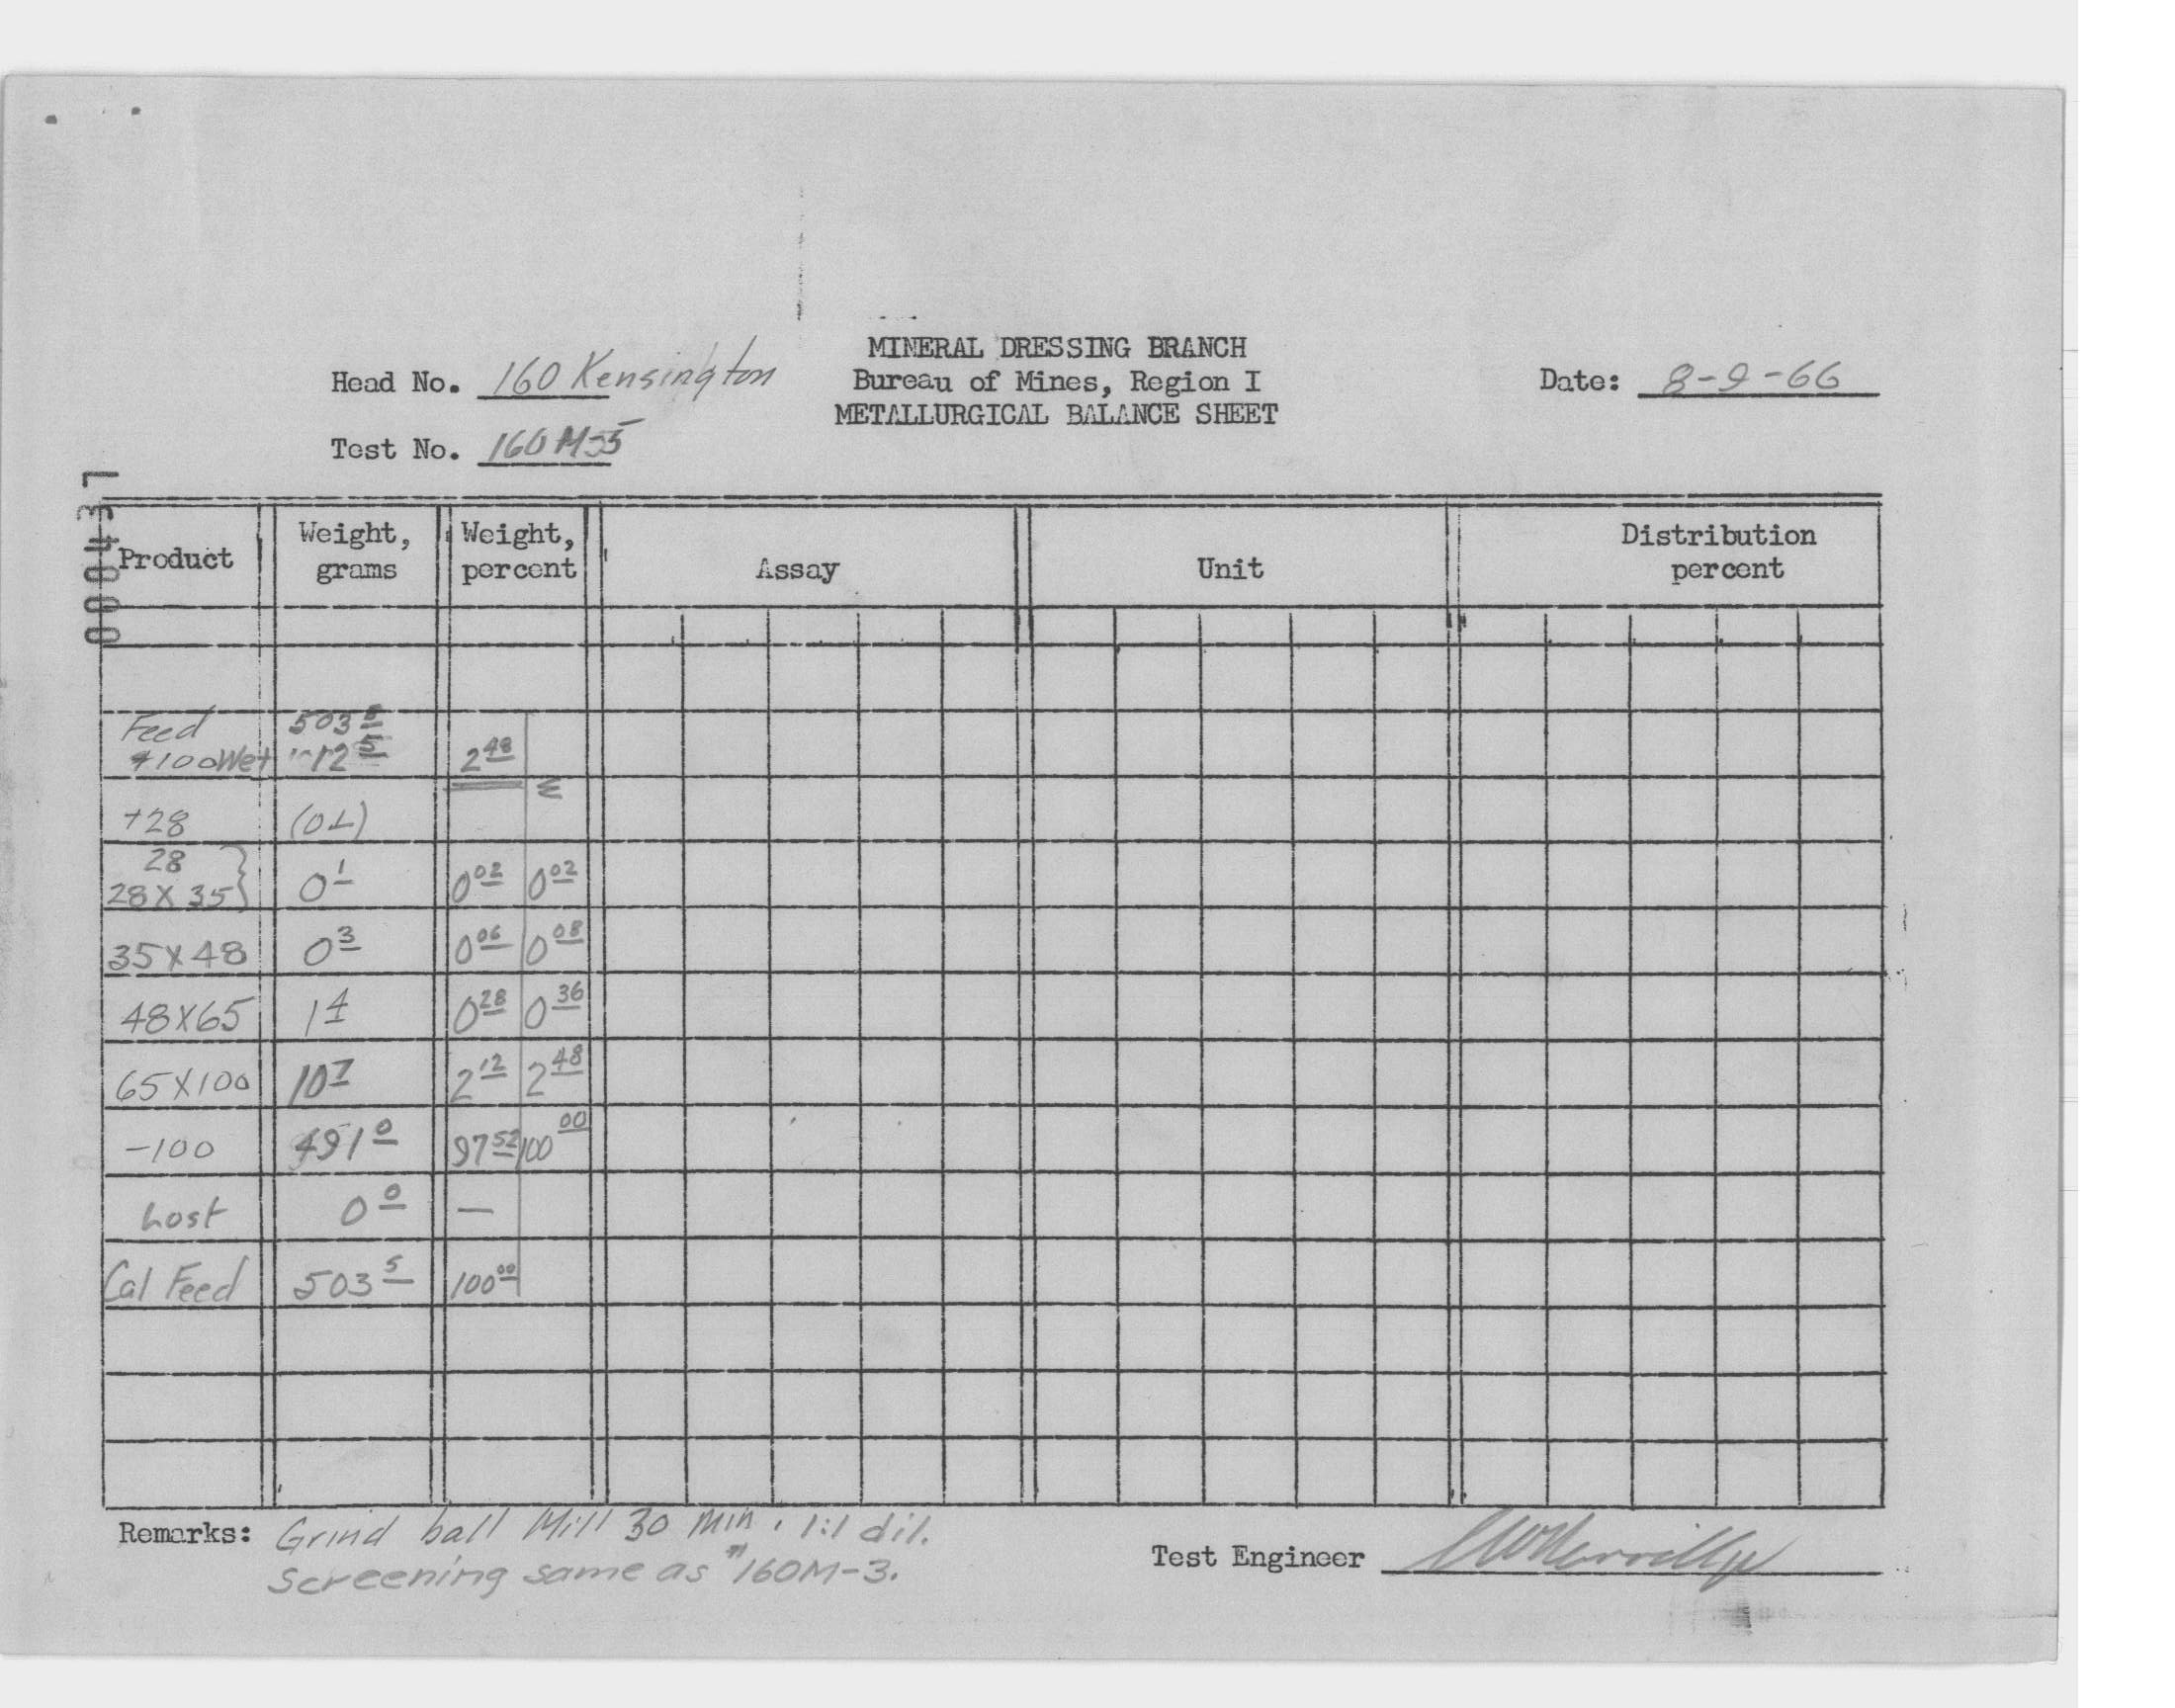 MINERAL DRESSING BRANCH
Head No. 160 Kensington Bureau of Mines, Region I Date: 8-9-66
METALLURGICAL BALANCE SHEET
Test No. 160 M-5
000437
Product Weight, grams Weight, percent Assay Unit Distribution percent
Feed 503 5
+100 Wet 12 5 2 48
Σ
+28 (0 1)
28
28 X 35 } 0 1 0 02 0 02
35 X 48 0 3 0 06 0 08
48 X 65 1 4 0 28 0 36
65 X 100 10 7 2 12 2 48
-100 491 0 97 52 100 00
Lost 0 0 —
Cal Feed 503 5 100 00
Remarks: Grind ball Mill 30 Min. 1:1 dil.
Screening same as #160M-3.
Test Engineer